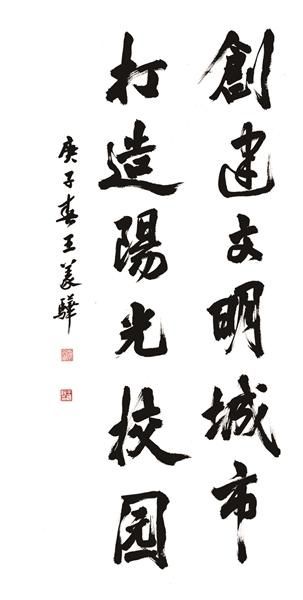 創建文明城市
打造陽光校园
庚子春王羲驊